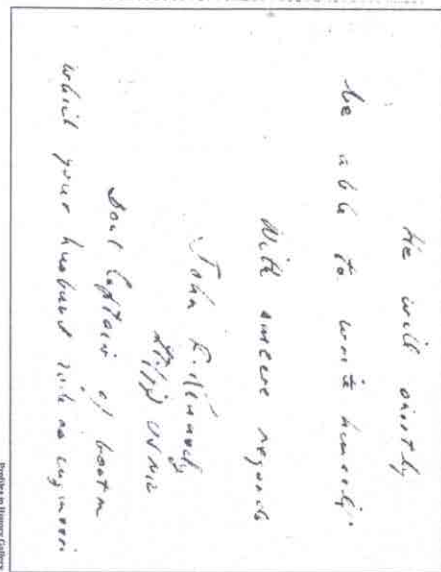 He will shortly
be able to write himself.
With sincere regards
John F. Kennedy
USNR
Boat Captain of boat
which your husband as engineer
Profiles in History Gallery